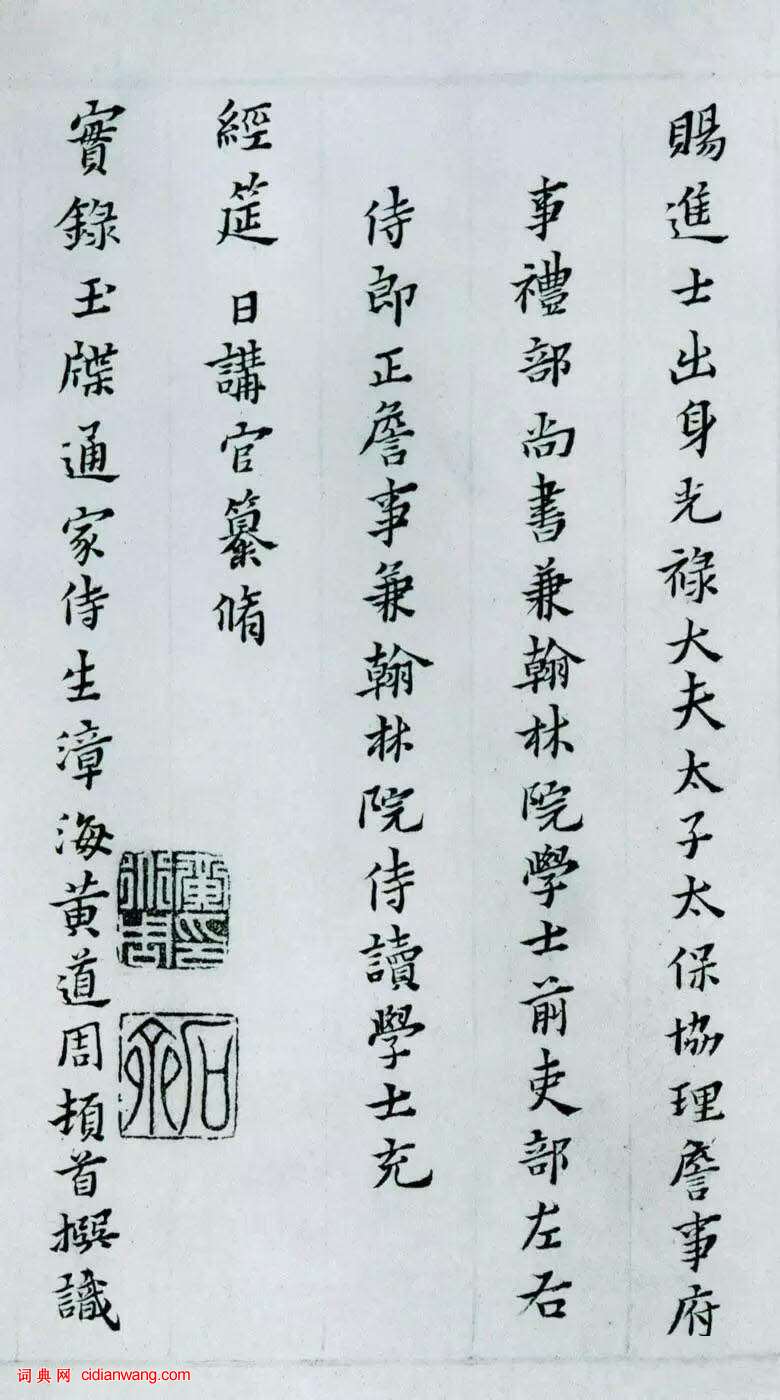 賜進士出身光祿大夫太子太保協理詹事府
事禮部尚書兼翰林院學士前吏部左右
侍郎正詹事兼翰林院侍讀學士充
經筵日講官纂脩
實錄玉牒通家侍生漳海黃道周頓首撰識
黃印道周
石齋
词典网 cidianwang.com